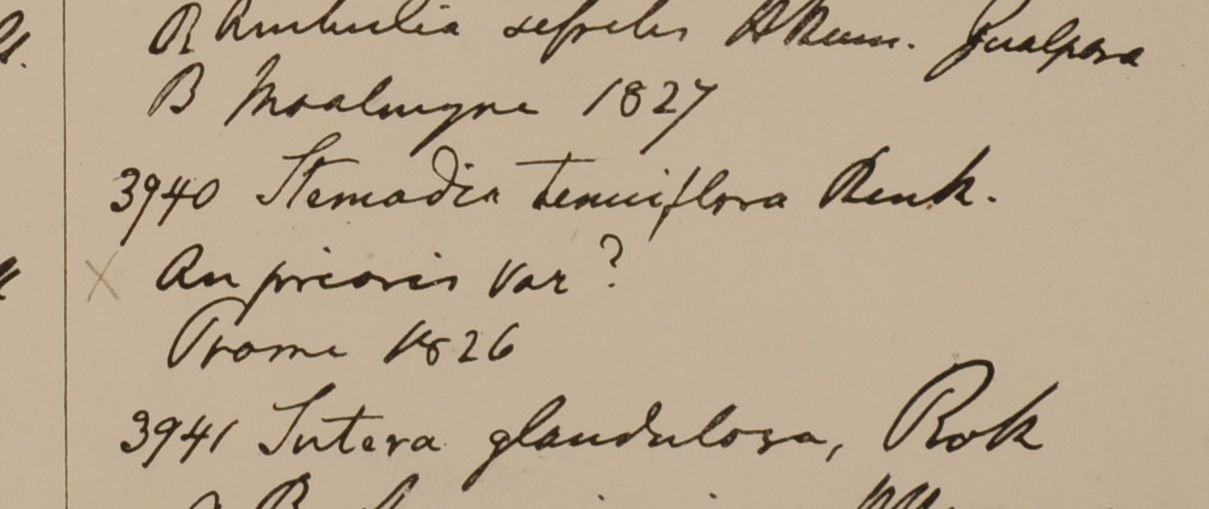 R Ambulia sessilis HHam. Gualpara
B Moalmyne 1827
3940 Stemodia tenuiflora Benth.
An prioris var?
Prome 1826
3941 Sutera glandulosa, Roth